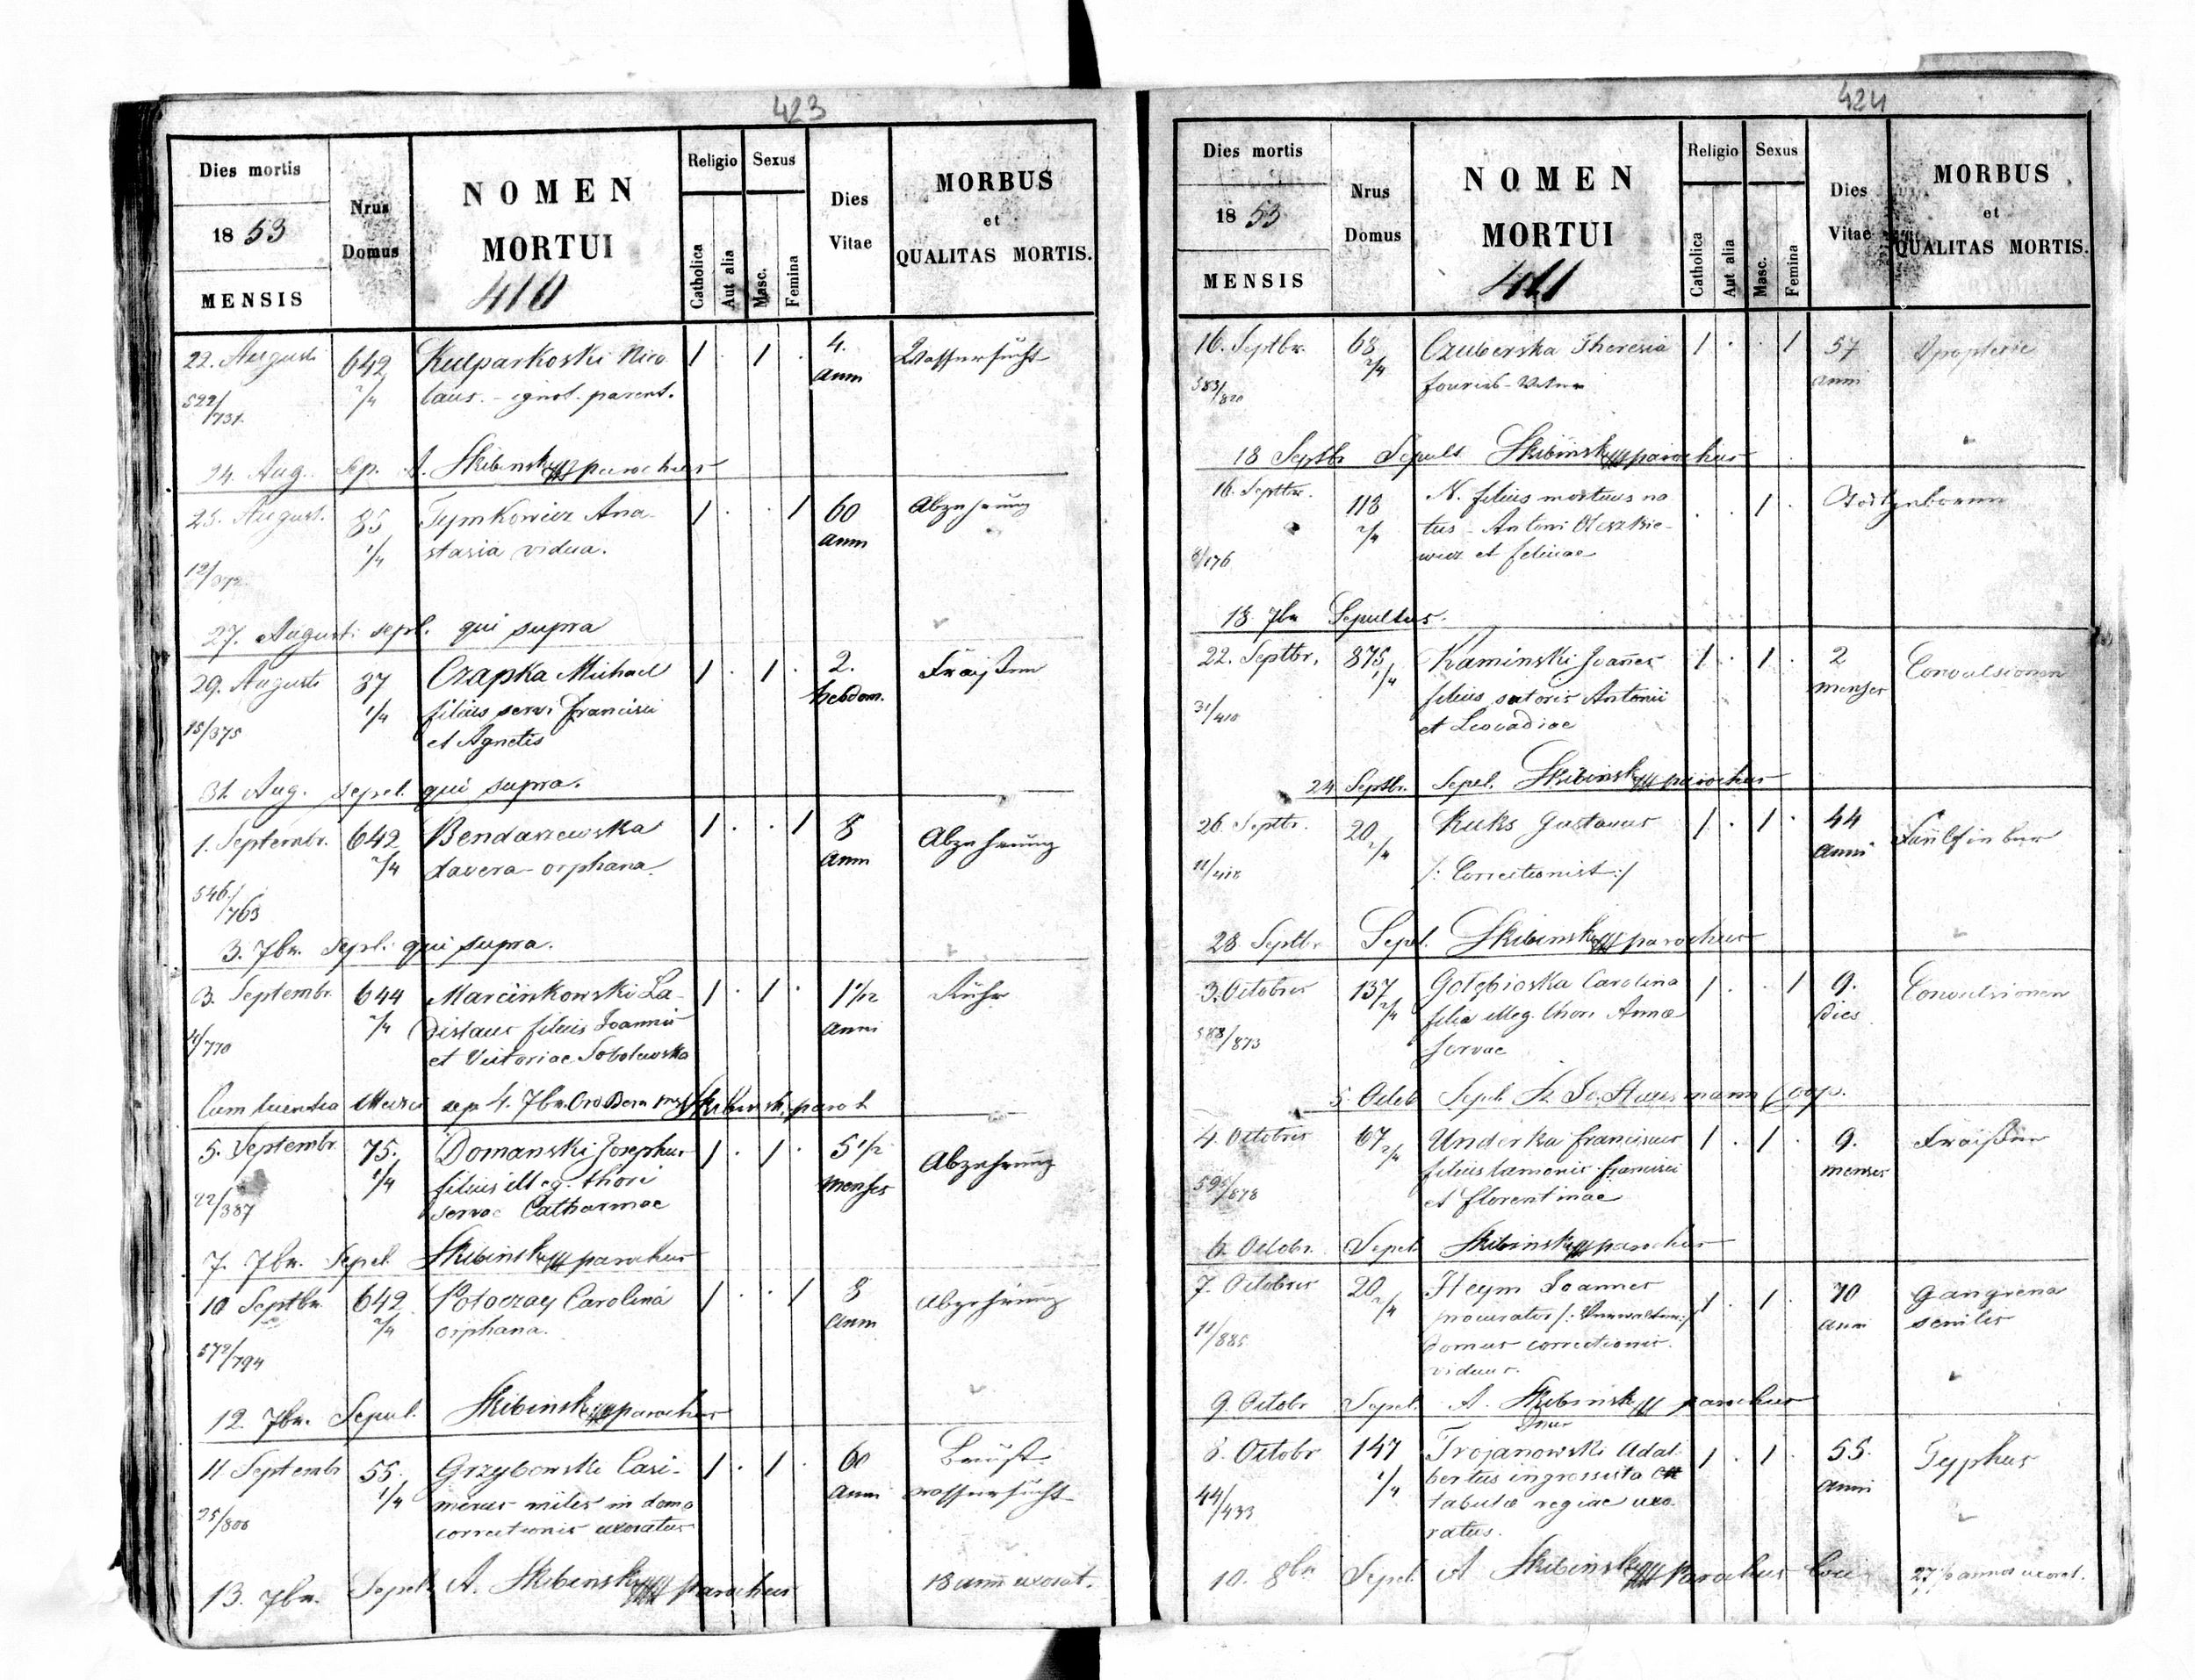 423
Dies mortis
1853
MENSIS
Nrus
Domus
NOMEN
MORTUI
410
Religio
Sexus
Catholica
Aut alia
Masc.
Femina
Dies
Vitae
MORBUS
et
QUALITAS MORTIS.
22. Augusti 642 Kulparkoski Nico 1 . 1 . 4. Wassersucht
2/4 laus. - ignot. parent. anni
522/731
24. Aug. Sep. A. Skibinski parochus
25. August. 85 Tymkowicz Ana- 1 . . 1 60 Abzehrung
1/4 stasia vidua. anni
12/372
27. Augusti sepl. qui supra
29. Augusti 37 Czapka Michael 1 . 1 . 2. Fraißen
1/4 filius servi Francisci hebdom.
15/375 et Agnetis
31. Aug. sepel. qui supra.
1. Septembr. 642 Bendaszewska 1 . . 1 8 Abzehrung
2/4 Xavera - orphana. anni
546/763
3. 7br. Sepl. qui supra.
3. Septembr. 644 Marcinkowski La- 1 . 1 . 1 1/2 Ruhr
2/4 dislaus filius Joannis anni
4/770 et Victoriae Sobolewska
Cum licentia sep 4. 7br.
5. Septembr. 75. Domanski Josephus 1 . 1 . 5 1/2 Abzehrung
1/4 filius illeg. thori menses
22/387 servae Catharinae
7. 7br. Sepel. Skibinski parochus
10 Septbr. 642 Potoczay Carolina 1 . . 1 8 Abzehrung
2/4 orphana. anni
572/794
12. 7br. Sepul. Skibinski parochus
11 Septembr 55. Grzybowski Casi- 1 . 1 . 60 Brust
1/4 mirus miles in domo anni wassersucht
25/808 correctionis uxoratus
13. 7br. Sepel. A. Skibinski parochus 18 anni uxorat.
424
Dies mortis
1853
MENSIS
Nrus
Domus
NOMEN
MORTUI
411
Religio
Sexus
Catholica
Aut alia
Masc.
Femina
Dies
Vitae
MORBUS
et
QUALITAS MORTIS.
16. Septbr. 68 Czuberska Theresia 1 . . 1 57 Apoplexie
2/4 anni
583/820
18 Septbr Sepult Skibinski parochus
16. Septbr. 118 N. filius mortuus na . . 1 . Todtgeboren
2/4 tus - Antoni Oleszkie-
6/176 wicz et feliciae
18 7br Sepultus.
22. Septbr. 875 Kaminski Joañes 1 . 1 . 2 Convulsionen
1/4 filius sutoris Antonii menses
31/410 et Leocadiae
24 Septbr. Sepel. Skibinski parochus
26 Septbr. 20 Kuks Gustavus 1 . 1 . 44 Faulfieber
2/4 /: Correctionist :/ anni
11/418
28. Septbr Sepel. Skibinski parochus
3. Octobris 137 Gołębioska Carolina 1 . . 1 9. Convulsionen
2/4 filia illeg. thori Annae dies
588/873 servae
5 Octob Sepel. Hausmann Coop.
4. Octobris 67 Underka franciscus 1 . 1 . 9. Fraißen
2/4 filius lanionis francisci menses
595/878 et florentinae
6. Octobr. Sepel Skibinski parochus
7. Octobris 20 Heym Joannes 1 . 1 . 70 Gangrena
2/4 procurator /: Verwalter :/ anni senilis
11/885 domus correctionis.
viduus.
9 Octobr Sepel. A. Skibinski parochus
8. Octobr 147 Trojanowski Adal- 1 . 1 . 55. Typhus
1/4 bertus ingrossista anni
44/433 tabulae regiae uxo-
ratus.
10. 8br Sepel. A Skibinski parochus loci 27 1/2 annos uxorat.